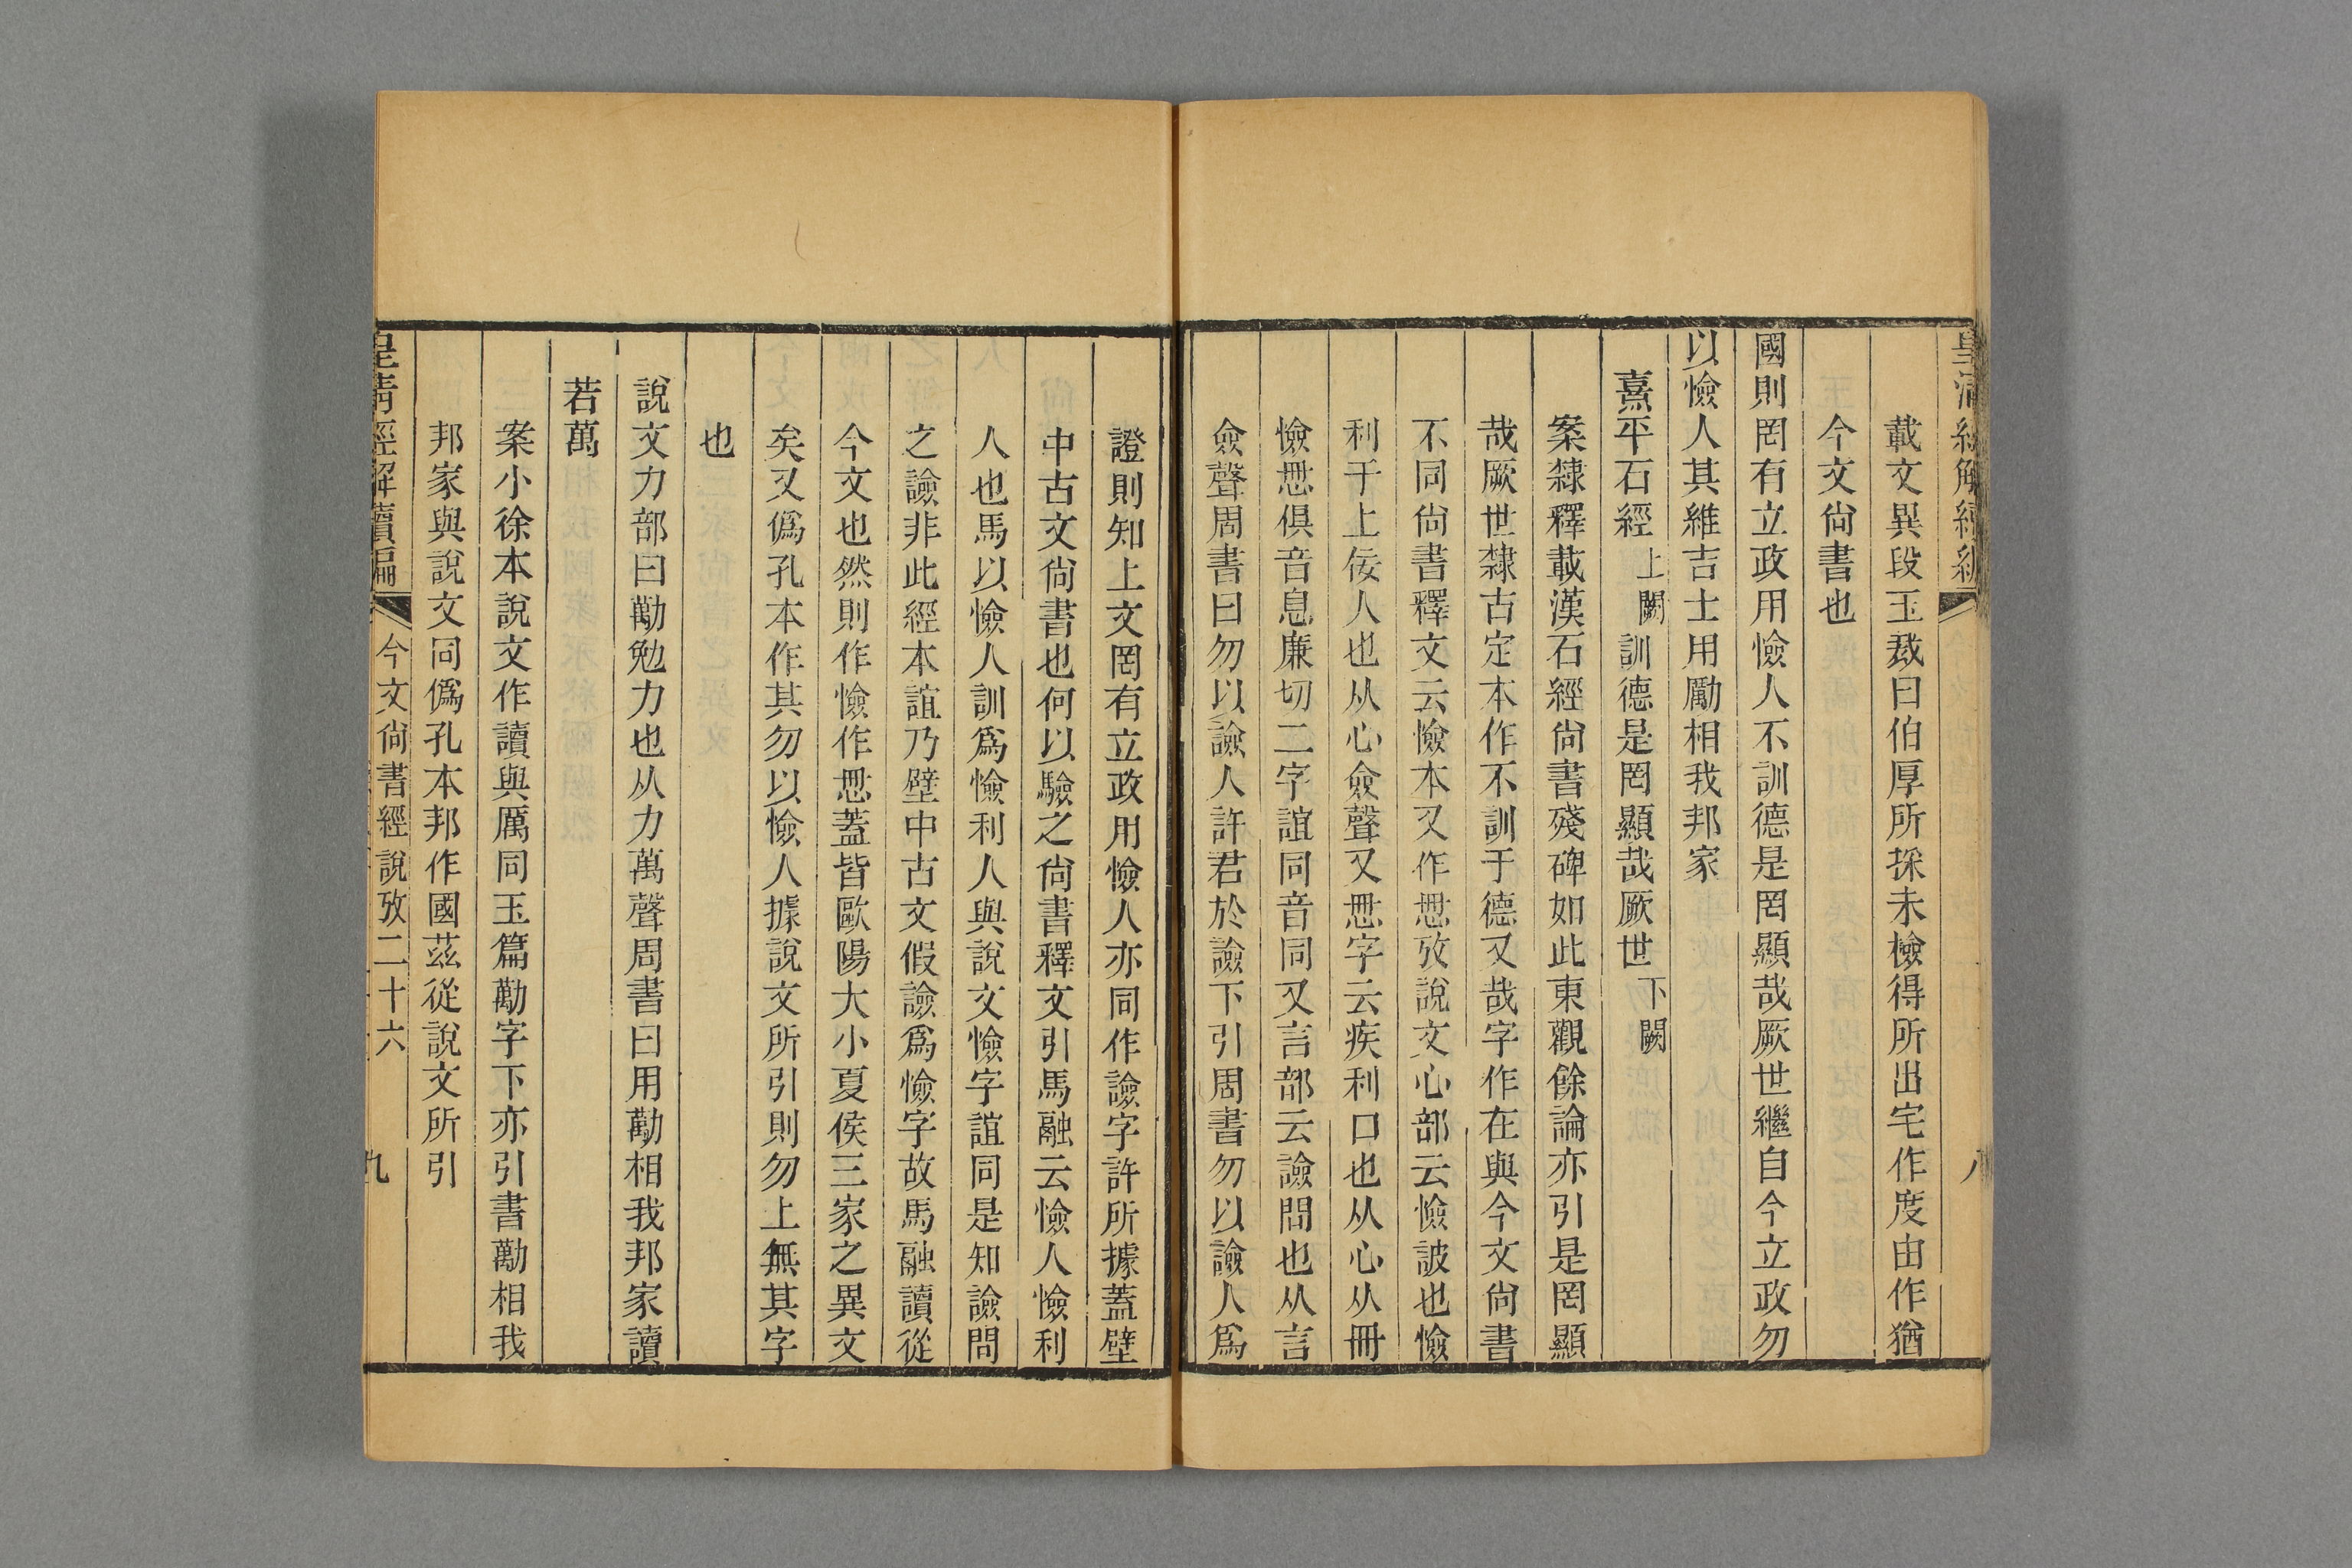 載文異段玉裁曰伯厚所採未檢得所出宅作度由作猶
今文尙書也
國則罔有立政用憸人不訓德是罔顯哉厥世繼自今立政勿
以憸人其維吉士用勵相我邦家
熹平石經上闕訓德是罔顯哉厥世下闕
案隸釋載漢石經尙書殘碑如此東觀餘論亦引是罔顯
哉厥世隸古定本作不訓于德又哉字作在與今文尙書
不同尙書釋文云憸本又作𢘅攷說文心部云憸詖也憸
利于上佞人也从心僉聲又𢘅字云疾利口也从心从冊
憸𢘅俱音息廉切二字誼同音同又言部云譣問也从言
僉聲周書曰勿以譣人許君於譣下引周書勿以譣人爲
證則知上文罔有立政用憸人亦同作譣字許所據蓋壁
中古文尙書也何以驗之尙書釋文引馬融云憸人憸利
人也馬以憸人訓爲憸利人與說文憸字誼同是知譣問
之譣非此經本誼乃壁中古文假譣爲憸字故馬融讀從
今文也然則作憸作𢘅蓋皆歐陽大小夏侯三家之異文
矣又僞孔本作其勿以憸人據說文所引則勿上無其字
也
說文力部曰勱勉力也从力萬聲周書曰用勱相我邦家讀
若萬
案小徐本說文作讀與厲同玉篇勱字下亦引書勱相我
邦家與說文同僞孔本邦作國茲從說文所引
皇清經解續編
今文尙書經說攷二十六
九